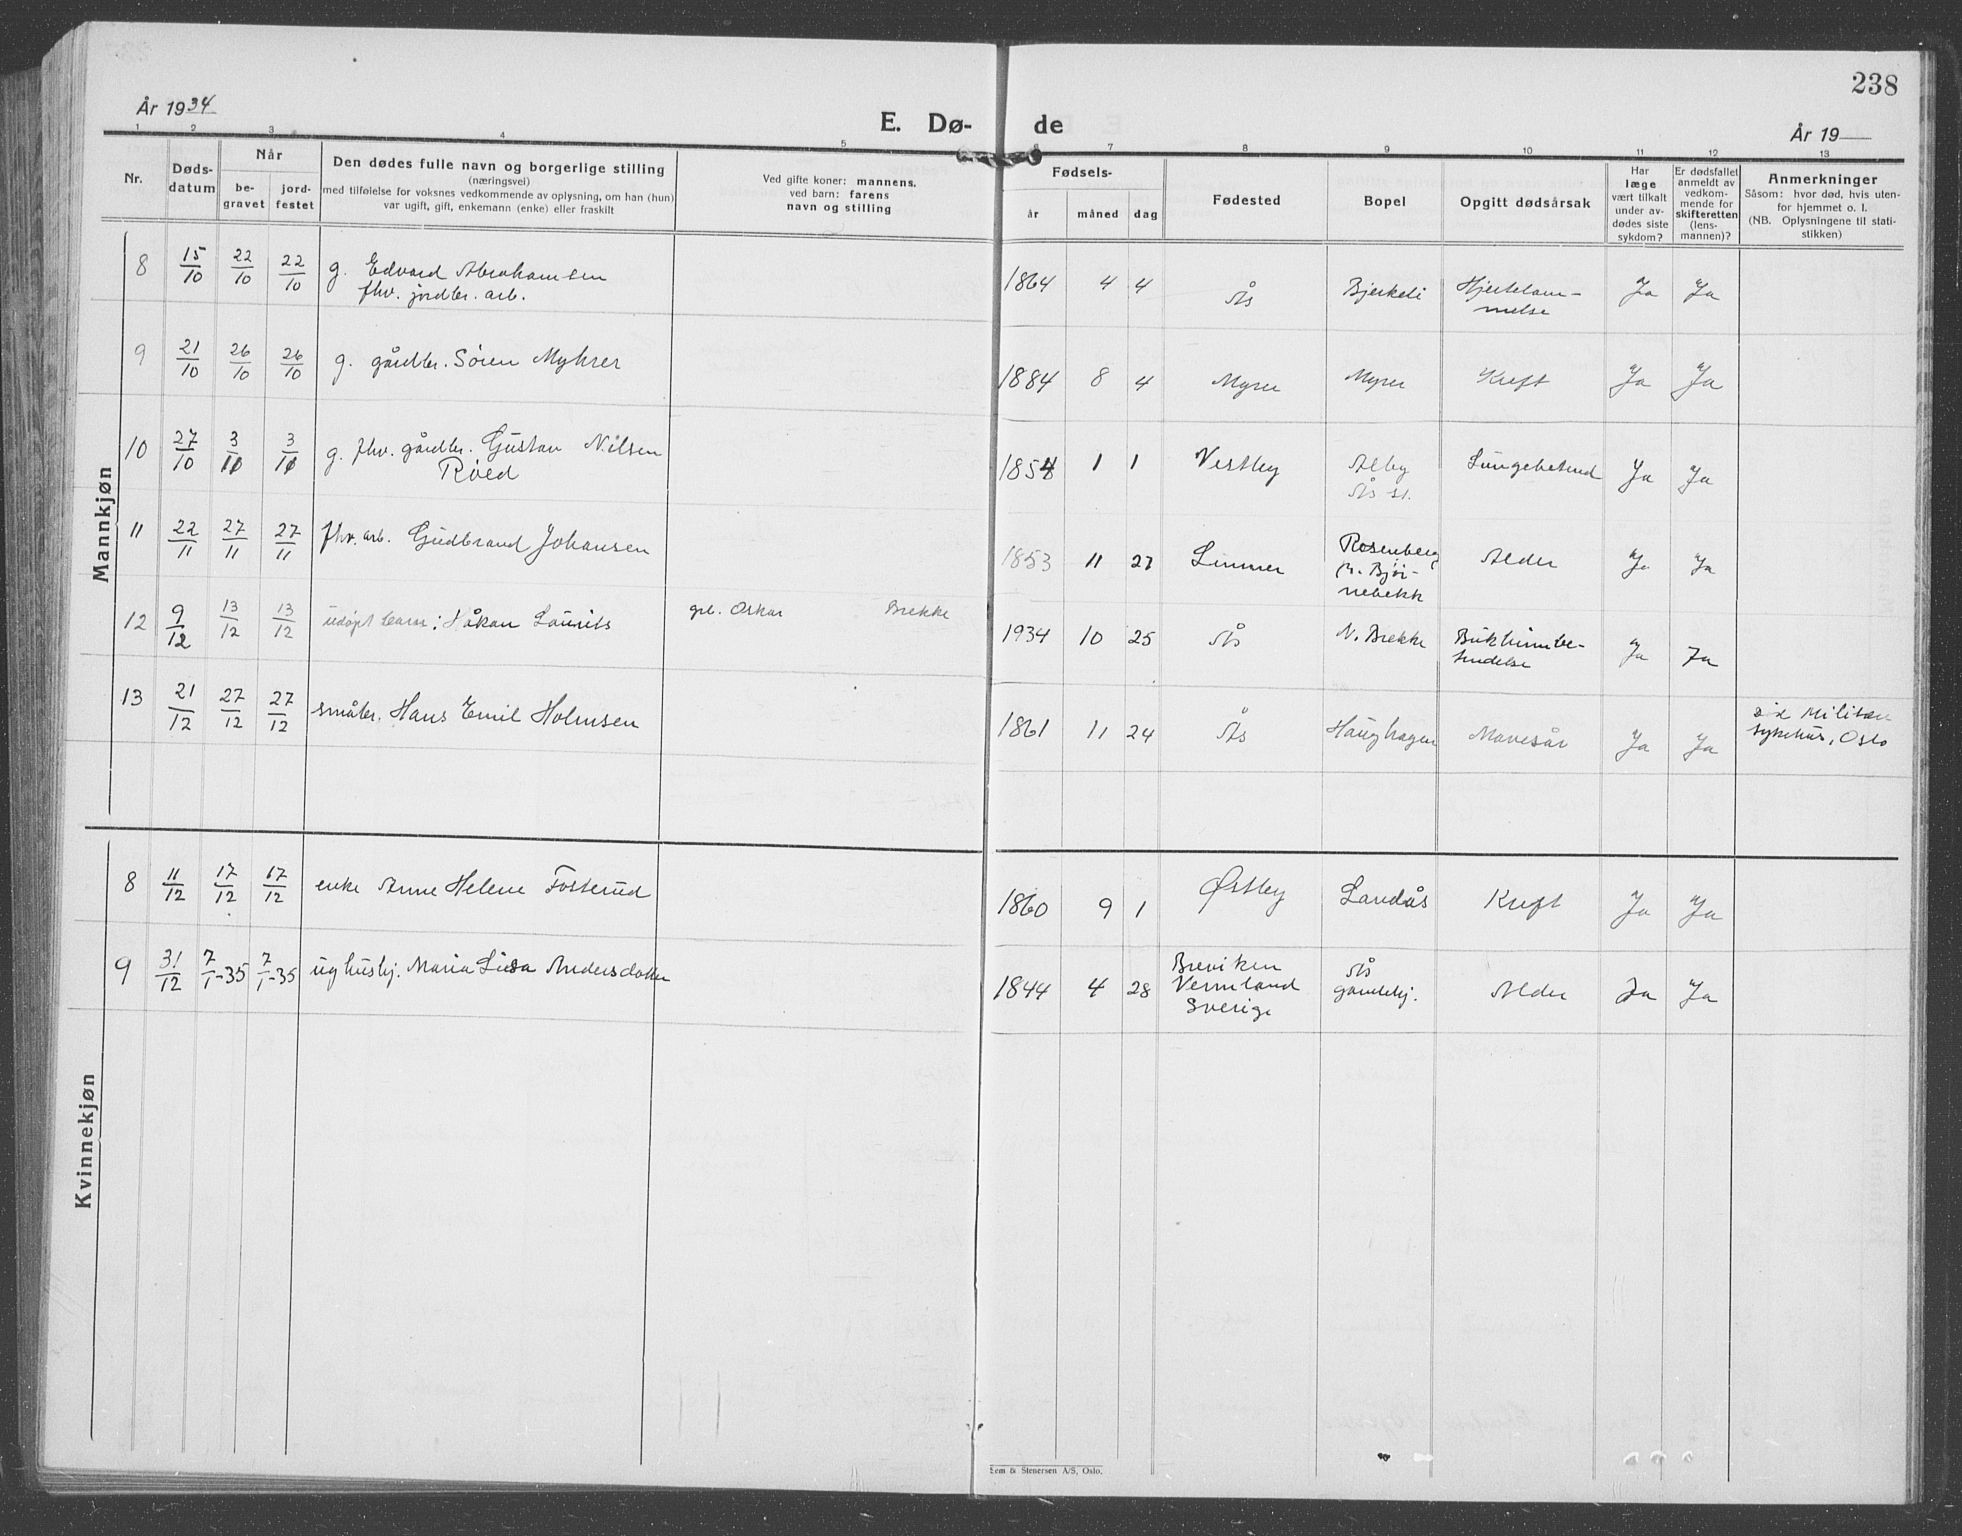 238
År 1934
E. Dø-
de
År 19
1 2 3 4 5 6 7 8 9 10 11 12 13
Nr.
Døds-
datum
Når
be-
gravet
jord-
festet
Den dødes fulle navn og borgerlige stilling
(næringsvei)
med tilføielse for voksnes vedkommende av oplysning, om han (hun)
var ugift, gift, enkemann (enke) eller fraskilt
Ved gifte koner: mannens.
ved barn: farens
navn og stilling
Fødsels-
år måned dag
Fødested
Bopel
Opgitt dødsårsak
Har
læge
vært tilkalt
under av-
dødes siste
sykdom?
Er dødsfallet
anmeldt av
vedkom-
mende for
skifteretten
(lens-
mannen)?
Anmerkninger
Såsom: hvor død, hvis uten-
for hjemmet o. l.
(NB. Oplysningene til stati-
stikken)
Mannkjøn
8 15/10 22/10 22/10 g. Edvard Abrahamsen
fhv. jordbr. arb.
1864 4 4 Ås Bjerkeli Hjertelam-
melse
Ja Ja
9 21/10 26/10 26/10 g. gårdbr. Søren Myhrer
1884 8 4 Myrer Myrer Kreft Ja Ja
10 27/10 3/11 3/11 g. fhv. gårdbr. Gustav Nilsen
Röed
1854 1 1 Vestby Alby
Ås st.
Lungebetend Ja Ja
11 22/11 27/11 27/11 fhv. arb. Gudbrand Johansen
1853 11 27 Rosenberg
p. Bjør-
nebekk
Alder Ja Ja
12 9/12 13/12 13/12 udøpt barn: Håkon Laurits gbr. Oskar Brekke
1934 10 25 Ås N. Brekke Bukhinnbe-
tendelse
Ja Ja
13 21/12 27/12 27/12 småbr. Hans Emil Holmsen
1861 11 24 Ås Haughagen Mavesår Ja Ja
död Militær
sykehus, Oslo
Kvinnekjøn
8 11/12 17/12 17/12 enke Anne Helene Fosterud
1860 9 1 Østby Landås Kreft Ja Ja
9 31/12 7/1-35 7/1-35 ug hushj. Maria Lisa Andersdotter
1844 4 28 Breviken
Vermland
Sverige
Ås
gamlehj.
Alder Ja Ja
Sem & Stenersen A/S, Oslo.